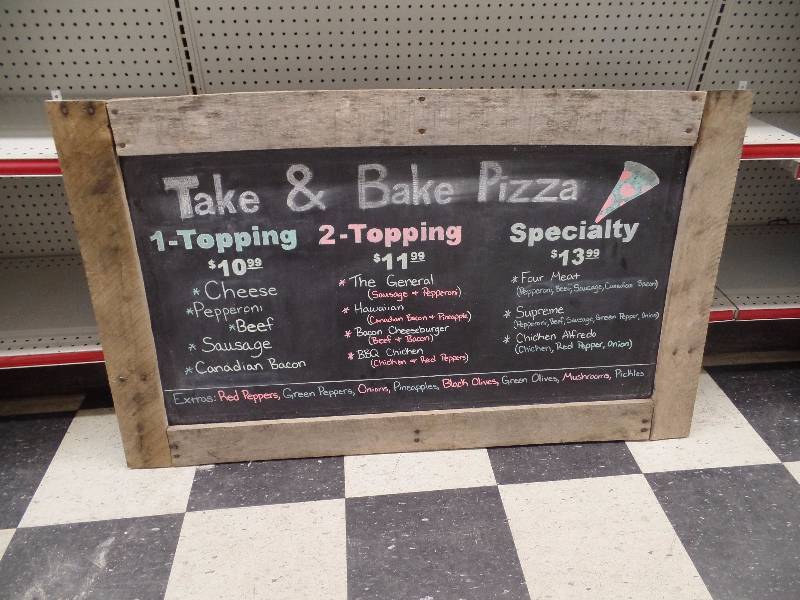 Take & Bake Pizza
1-Topping
$10.99
* Cheese
* Pepperoni
* Beef
* Sausage
* Canadian Bacon
2-Topping
$11.99
* The General
(Sausage & Pepperoni)
* Hawaiian
(Canadian Bacon & Pineapple)
* Bacon Cheeseburger
(Beef & Bacon)
* BBQ Chicken
(Chicken & Red Peppers)
Specialty
$13.99
* Four Meat
(Pepperoni, Beef, Sausage, Canadian Bacon)
* Supreme
(Pepperoni, Beef, Sausage, Green Pepper, Onion)
* Chicken Alfredo
(Chicken, Red Pepper, Onion)
Extras: Red Peppers, Green Peppers, Onions, Pineapples, Black Olives, Green Olives, Mushrooms, Pickles